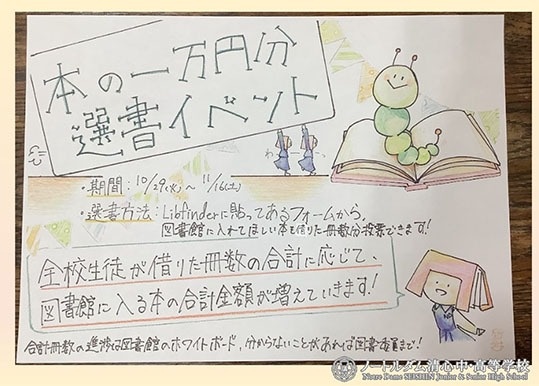 本の一万円分
選書イベント
わー
・期間：10/29(火)～11/16(土)
・選書方法：Libfinderに貼ってあるフォームから、
図書館に入れてほしい本を借りた冊数分投票できます！
全校生徒が借りた冊数の合計に応じて、
図書館に入る本の合計金額が増えていきます！
合計冊数の進捗は図書館のホワイトボード、分からないことがあれば図書委員まで！
ノートルダム清心中・高等学校
Notre Dame SEISHIN Junior & Senior High School